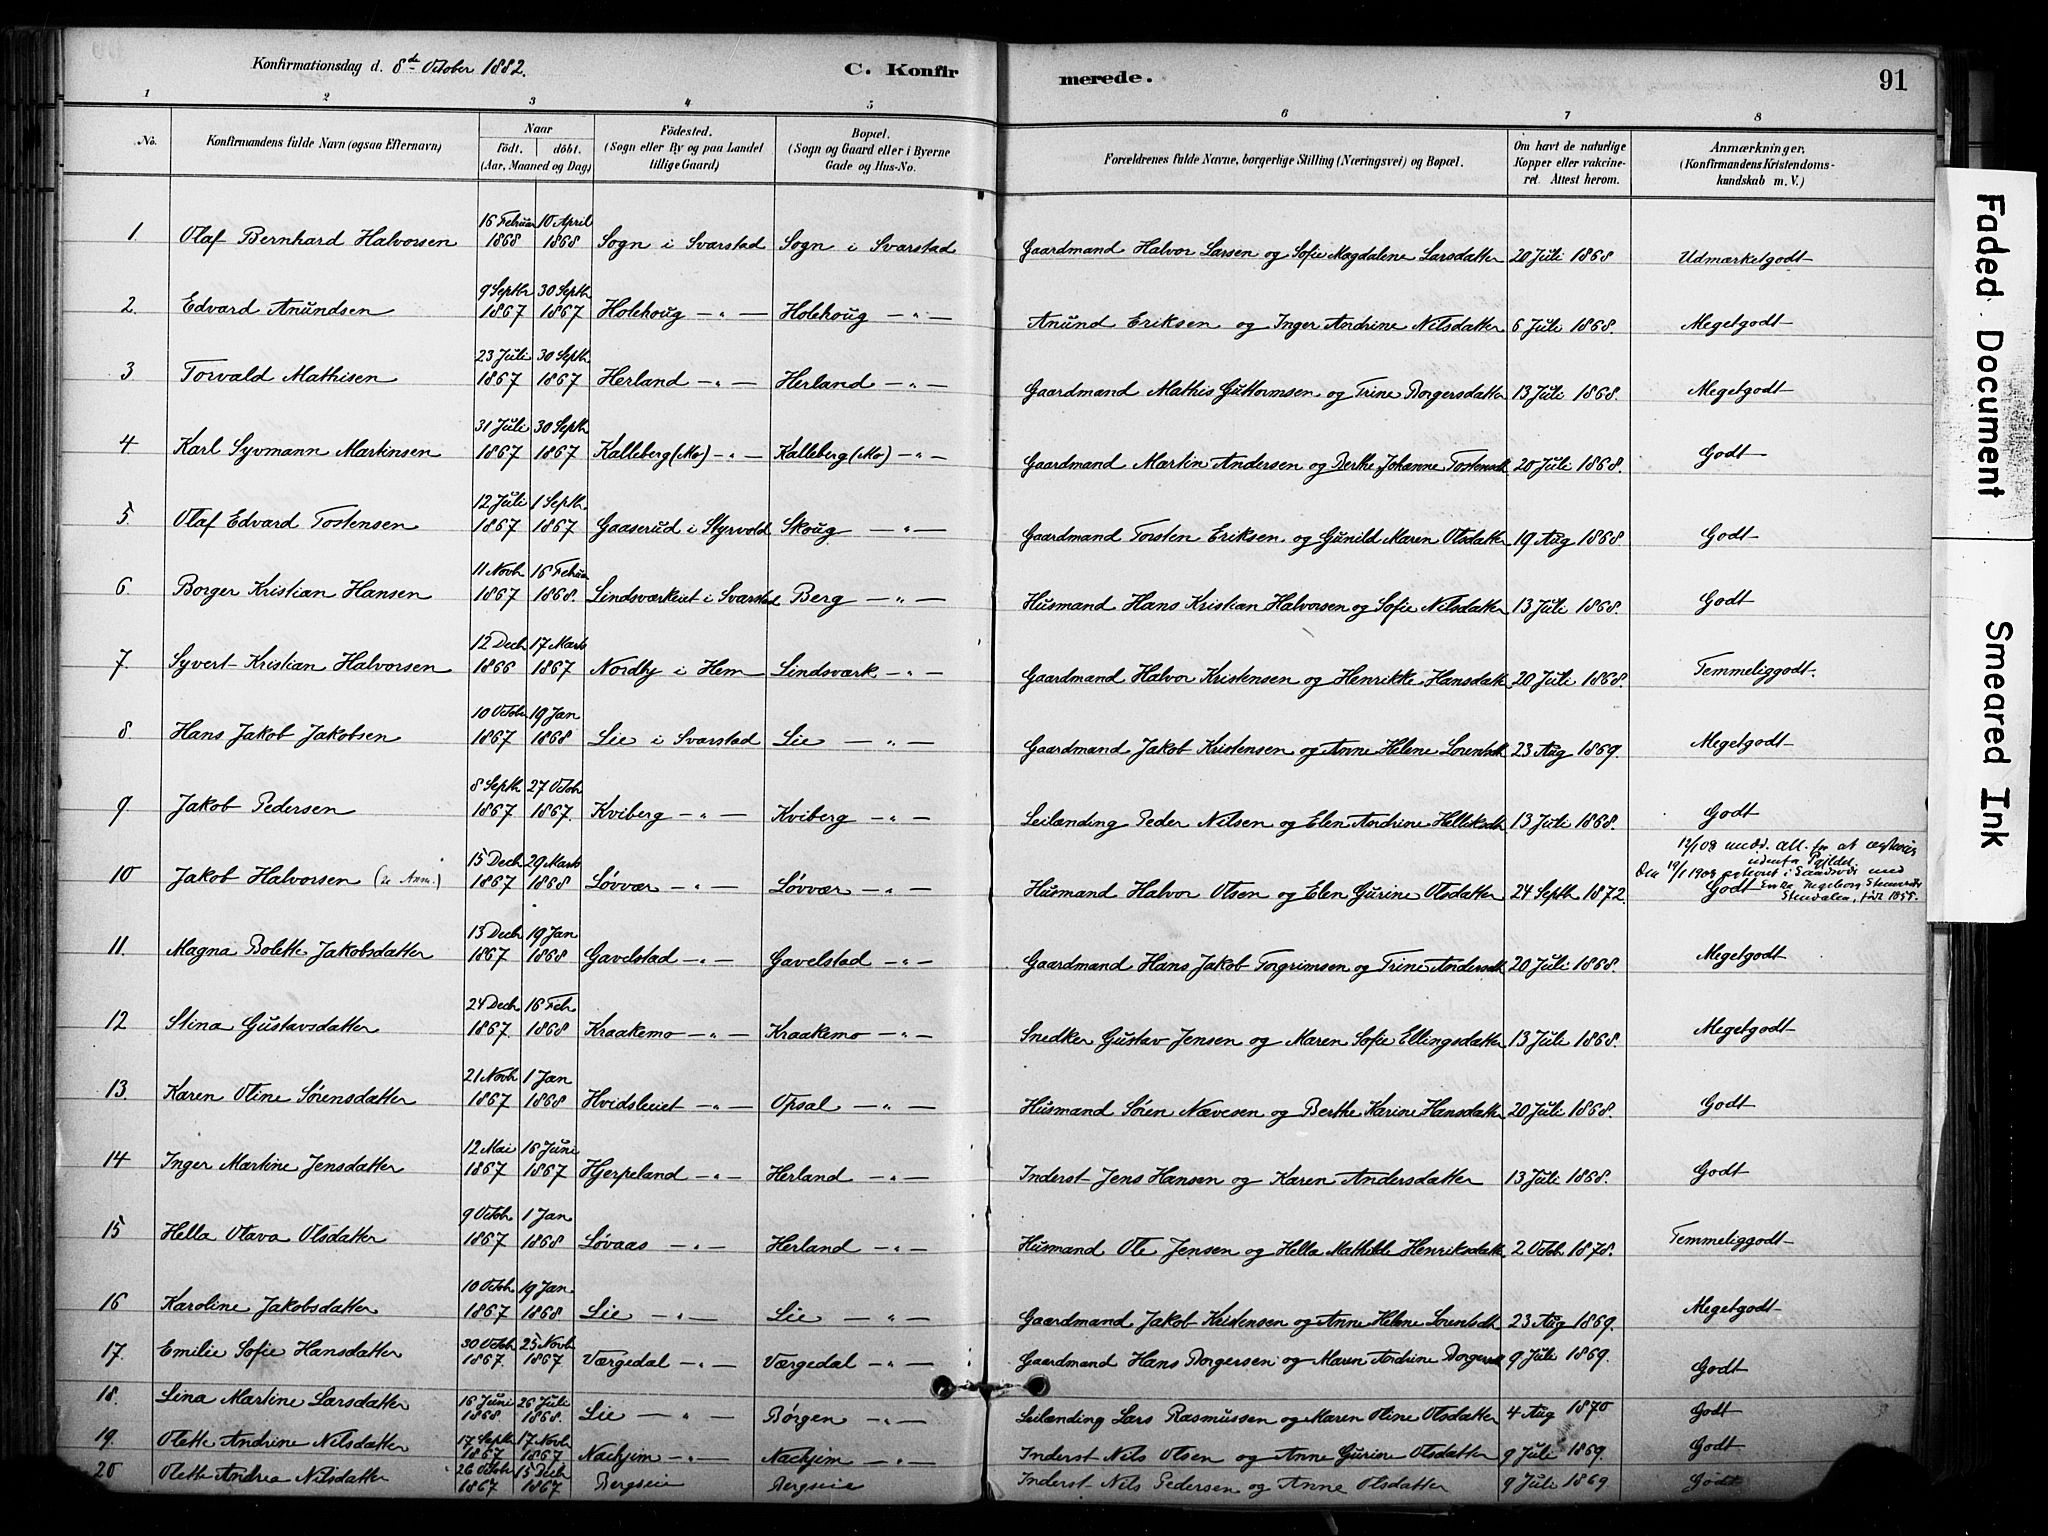 Konfirmationsdag d. 8de October 1882.
C. Konfir
merede.
91
1 2 3 4 5 6 7 8
No.
Konfirmandens fulde Navn (ogsaa Efternavn)
Naar
födt. döbt.
(Aar, Maaned og Dag)
Födested.
(Sogn eller By og paa Landet
tillige Gaard)
Bopæl.
(Sogn og Gaard eller i Byerne
Gade og Hus-No.
Forældrenes fulde Navne, borgerlige Stilling (Næringsvei) og Bopæl.
Om havt de naturlige
Kopper eller vakcine-
ret. Attest herom.
Anmærkninger,
(Konfirmandens Kristendoms-
kundskab m. V.)
1. Olaf Bernhard Halvorsen 16 Februar 1868 10 April 1868 Sogn i Svarstad Sogn i Svarstad Gaardmand Halvor Larsen og Sofie Magdalene Larsdatter 20 Juli 1868 Udmærketgodt
2. Edvard Anundsen 9 Septbr 1867 30 Septbr 1867 Holehoug — „ — Holehoug — „ — Anund Eriksen og Inger Andrine Nilsdatter 6 Juli 1868. Megetgodt
3 Torvald Mathisen 23 Juli 1867 30 Septb. 1867 Herland — „ — Herland — „ — Gaardmand Mathis Guttormsen og Trine Borgersdatter 13 Juli 1868. Megetgodt
4 Karl Syvmann Martinsen 31 Juli 1867 30 Septb 1867 Kalleberg (Mo) — „ — Kalleberg (Mo) — „ — Gaardmand Martin Andersen og Berthe Johanne Tostensdt 20 Juli 1868. Godt
5. Olaf Edvard Tostensen 12 Juli 1867 1 Septb. 1867 Gaaserud i Styrvold Skoug — „ — Gaardmand Torsten Eriksen og Gunild Maren Olsdatter 19 Aug 1868 Godt
6. Borger Kristian Hansen 11 Novb 1867 16 Februar 1868. Lindsværkeiet i Svarstad Berg — „ — Husmand Hans Kristian Halvorsen og Sofie Nilsdatter 13 Juli 1868 Godt
7. Syvert Kristian Halvorsen 12 Decb 1866 17 Marts 1867 Nordby i Hem Lindsværk — „ — Gaardmand Halvor Kristensen og Henrikke Hansdatt 20 Juli 1868. Temmeliggodt.
8. Hans Jakob Jakobsen 10 Octob 1867 19 Jan 1868 Lie i Svarstad Lie — „ — Gaardmand Jakob Kristensen og Anne Helene Lorentsdt 23 Aug 1869. Megetgodt
9. Jakob Pedersen 8 Septb 1867 27 Octob 1867. Kviberg — „ — Kviberg — „ — Leilænding Peder Nilsen og Elen Andrine Helliksdt. 13 Juli 1868. Godt
10 Jakob Halvorsen (se Anm.) 15 Decb 1867 29 Marts 1868 Løvvær — „ — Løvvær — „ — Husmand Halvor Olsen og Elen Gurine Olsdatter 24 Septb 1872. Godt
at
Den 19/1 1908 i Sandsvær med
Enke Ingeborg
Stendalen, født 1855.
11. Magna Bolette Jakobsdatter 13 Decb 1867 19 Jan 1868 Gavelstad — „ — Gavelstad — „ — Gaardmand Hans Jakob Torgrimsen og Trine Andersdt 20 Juli 1868. Megetgodt
12 Stina Gustavsdatter 24 Decb 1867. 16 Feb 1868 Kraakemo — „ — Kraakemo — „ — Snedker Gustav Jensen og Maren Sofie Ellingsdatter 13 Juli 1868. Megetgodt
13. Karen Oline Sørensdatter 21 Novb 1867 1 Jan 1868 Hvidsteiet — „ — Opsal — „ — Husmand Søren Nævesen og Berthe Karine Hansdatter 20 Juli 1868. Godt
14 Inger Martine Jensdatter 12 Mai 1867 16 Juni 1867 Hjerpeland — „ — Herland — „ — Inderst Jens Hansen og Karen Andersdatter 13 Juli 1868. Godt
15 Hella Olava Olsdatter 9 Octob 1867 1 Jan 1868 Løvaas — „ — Herland — „ — Husmand Ole Jensen og Hella Mathilde Henriksdatt. 2 Octob 1878. Temmeliggodt
16 Karoline Jakobsdatter 10 Octob 1867 19 Jan 1868 Lie — „ — Lie — „ — Gaardmand Jakob Kristensen og Anne Helene Lorentsdt. 23 Aug 1869. Megetgodt
17. Emilie Sofie Hansdatter 30 Octob 1867. 25 Novb 1867 Værgedal — „ — Værgedal — „ — Gaardmand Hans Borgersen og Maren Andrine Borgersdt 9 Juli 1869. Godt
18. Lina Martine Larsdatter 16 Juni 1868 26 Juli 1868. Lie — „ — Børgen — „ — Leilænding Lars Rasmussen og Maren Oline Olsdatter 4 Aug 1870 Godt
19. Olette Andrine Nilsdatter 17 Septb 1867 17 Novb 1867 Nachjem — „ — Nachjem — „ — Inderst Nils Olsen og Anne Gurine Olsdatter 9 Juli 1869. Godt
20 Olette Andrea Nilsdatter 26 Octob 1867 15 Decb 1867 Bergseie Bergseie Inderst Nils Pedersen og Anne Olsdatter 9 Juli 1869 Godt
Faded Document
Smeared Ink